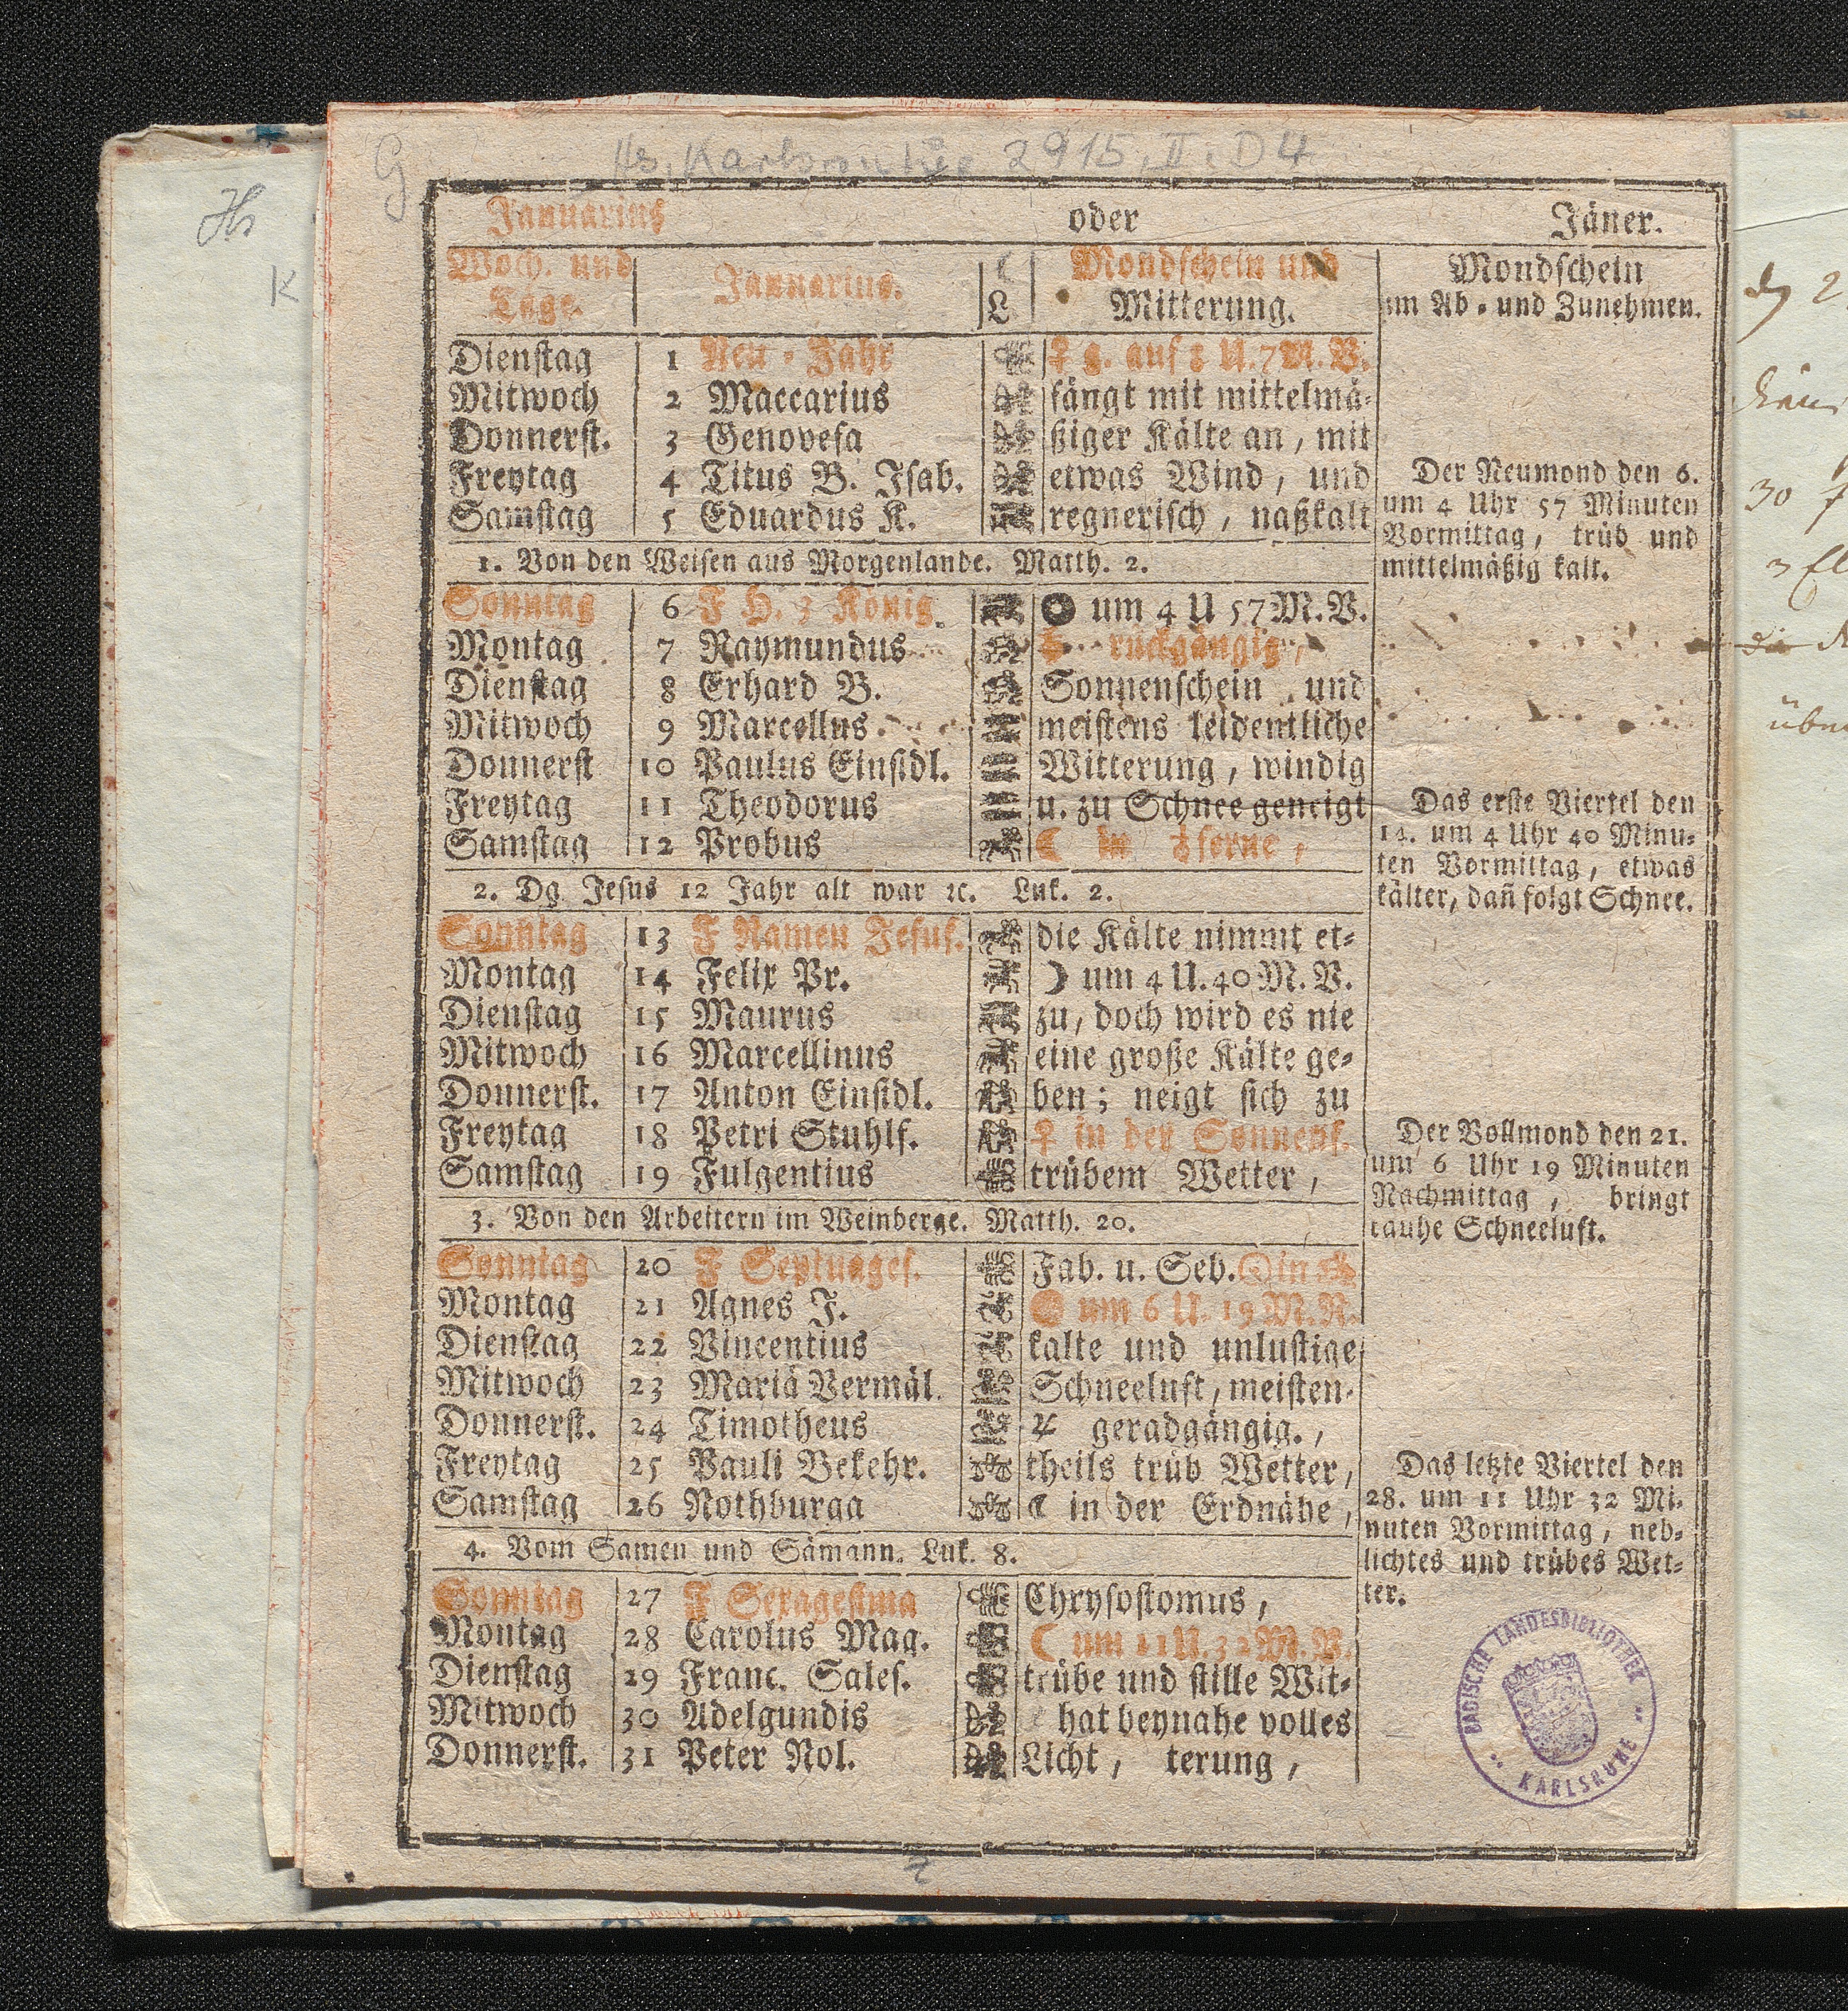 G
Hs. Karlsruhe 2915, II, D4
Hs
K
Januarius oder Jäner.
Woch. und
Tage.
Januarius.
☾
L
Mondschein und
Witterung.
Mondschein
im Ab- und Zunehmen.
Dienstag 1 Neu-Jahr ♀ g. auf U. 7 M. V.
Mitwoch 2 Maccarius fängt mit mittelmä-
Donnerst. 3 Genovefa ßiger Kälte an, mit
Freytag 4 Titus B. Isab. etwas Wind, und
Samstag 5 Eduardus K. regnerisch, naßkalt
1. Von den Weisen aus Morgenlande. Matth. 2.
Der Neumond den 6.
um 4 Uhr 57 Minuten
Vormittag, trüb und
mittelmäßig kalt.
Sonntag 6 F H. 3 König um 4 U 57 M. V.
Montag 7 Raymundus rückgängig,
Dienstag 8 Erhard B. Sonnenschein und
Mitwoch 9 Marcellus meistens leidentliche
Donnerst 10 Paulus Einsidl. Witterung, windig
Freytag 11 Theodorus u. zu Schnee geneigt
Samstag 12 Probus ☾ in ferne,
2. Da Jesus 12 Jahr alt war ꝛc. Luk. 2.
Das erste Viertel den
14. um 4 Uhr 40 Minu-
ten Vormittag, etwas
kälter, dañ folgt Schnee.
Sonntag 13 F Namen Jesus. die Kälte nimmt et-
Montag 14 Felix Pr. ☽ um 4 U. 40 M. V.
Dienstag 15 Maurus zu, doch wird es nie
Mitwoch 16 Marcellinus eine große Kälte ge-
Donnerst. 17 Anton Einsidl. ben; neigt sich zu
Freytag 18 Petri Stuhlf. ♀ in der Sonnenf.
Samstag 19 Fulgentius trübem Wetter,
3. Von den Arbeitern im Weinberge. Matth. 20.
Der Vollmond den 21.
um 6 Uhr 19 Minuten
Nachmittag, bringt
rauhe Schneeluft.
Sonntag 20 F Septuages. Fab. u. Seb. ☉ in
Montag 21 Agnes J. um 6 U. 19 M. N.
Dienstag 22 Vincentius kalte und unlustige
Mitwoch 23 Mariä Vermäl. Schneeluft, meisten-
Donnerst. 24 Timotheus ♃ geradgängig.,
Freytag 25 Pauli Bekehr. theils trüb Wetter,
Samstag 26 Nothburga ☾ in der Erdnähe,
4. Vom Samen und Sämann. Luk. 8.
Das letzte Viertel den
28. um 11 Uhr 32 Mi-
nuten Vormittag, neb-
lichtes und trübes Wet-
ter.
Sonntag 27 F Sexagesima Chrysostomus,
Montag 28 Carolus Mag. ☾ um 11 U. 32 M. V.
Dienstag 29 Franc. Sales. trübe und stille Wit-
Mitwoch 30 Adelgundis hat beynahe volles
Donnerst. 31 Peter Nol. Licht, terung,
BADISCHE LANDESBIBLIOTHEK
KARLSRUHE
2
30